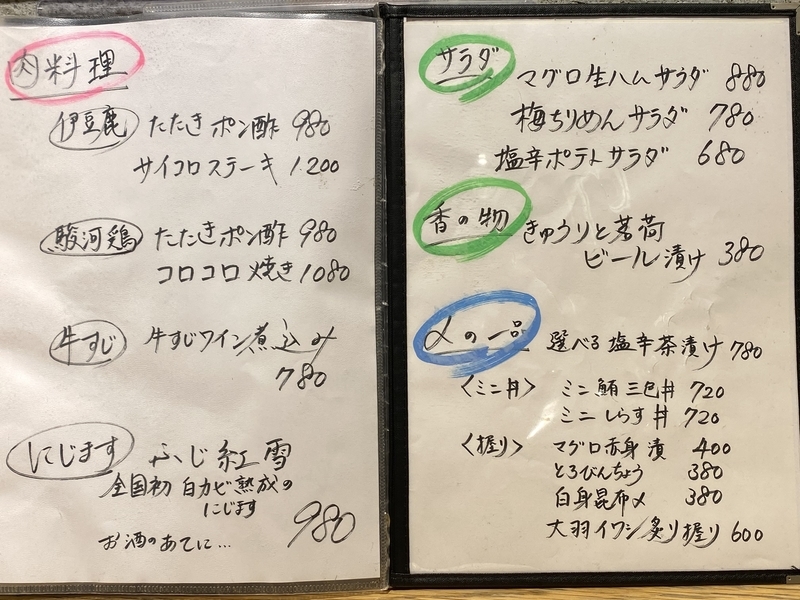 肉料理
伊豆鹿 たたきポン酢 980
サイコロステーキ 1200
駿河鶏 たたきポン酢 980
コロコロ焼き 1080
牛すじ 牛すじワイン煮込み
780
にじます ふじ紅雪
全国初 白カビ熟成の
にじます
980
お酒のあてに…
サラダ マグロ生ハムサラダ 880
梅ちりめんサラダ 780
塩辛ポテトサラダ 680
香の物 きゅうりと茗荷
ビール漬け 380
〆の一品 選べる塩辛茶漬け 780
〈ミニ丼〉 ミニ鮪三色丼 720
ミニしらす丼 720
〈握り〉 マグロ赤身漬 400
とろびんちょう 380
白身昆布〆 380
大羽イワシ炙り握り 600